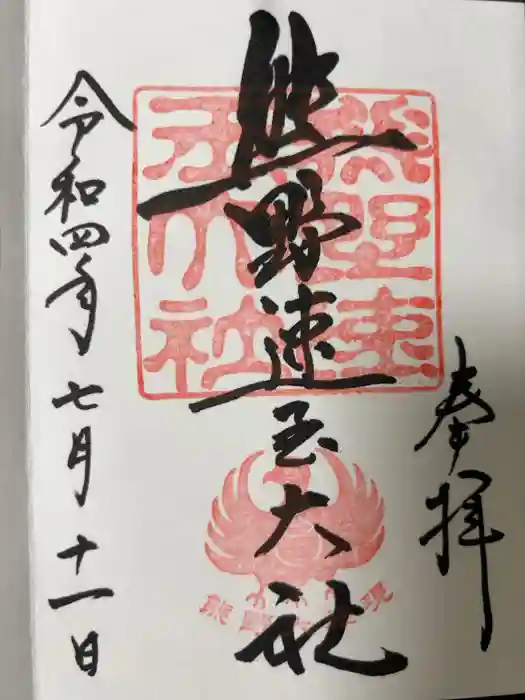 奉拝
熊野速玉大社
令和四年七月十一日
熊野速
玉大社